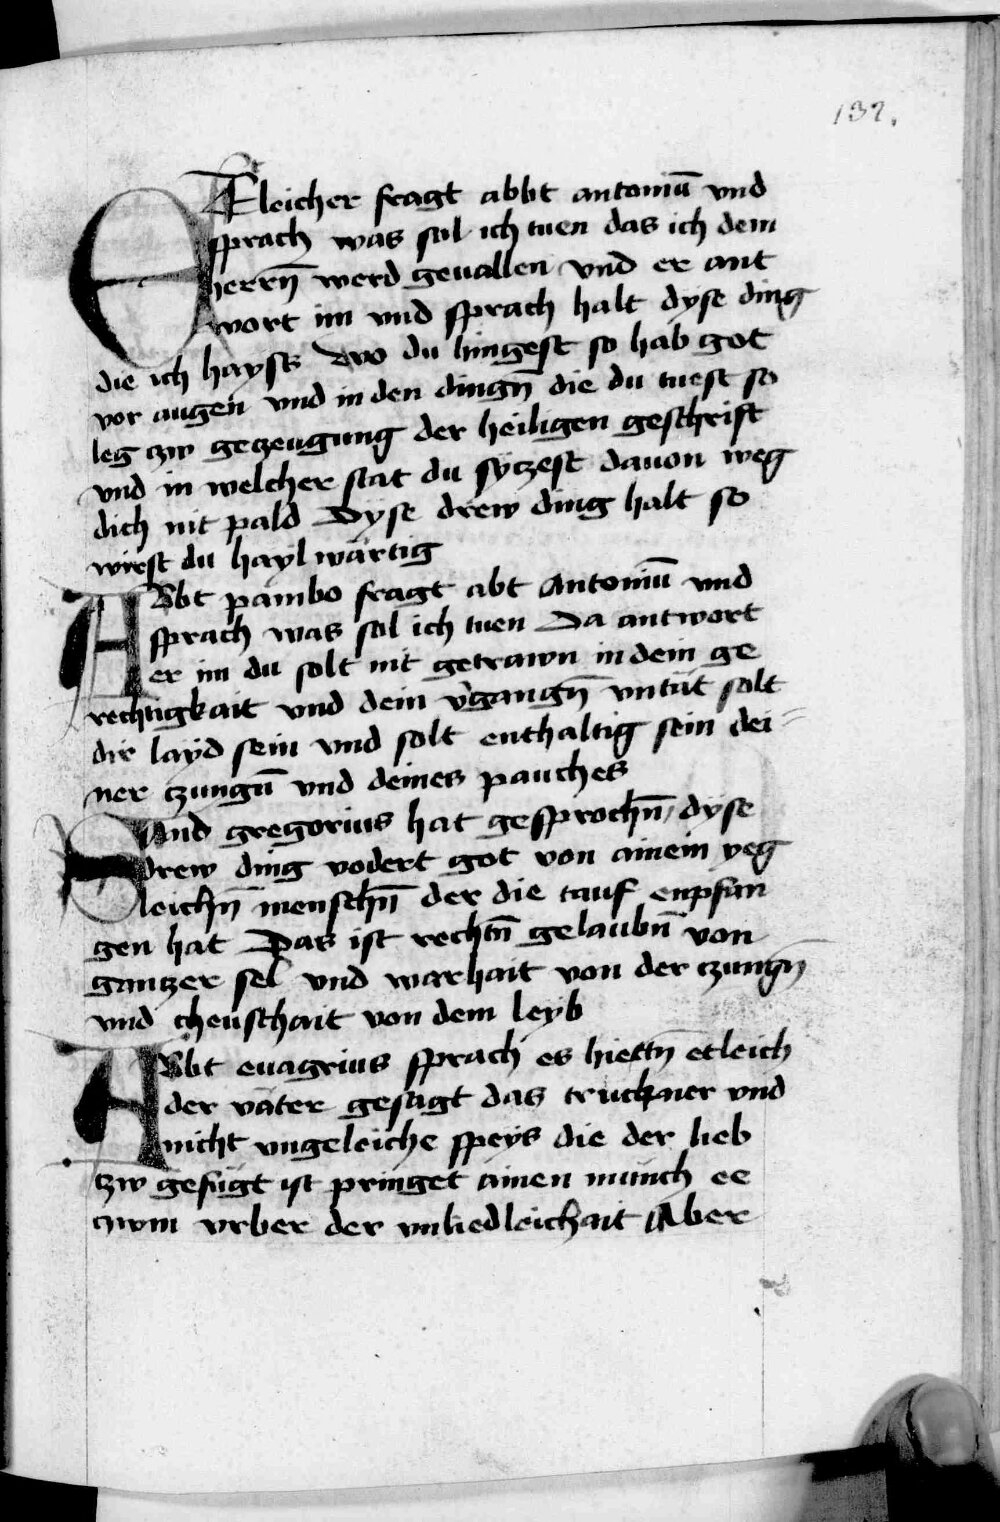 132.
ETleicher fragt abbt antoniū vnd
sprach was sol ich tuen das ich dem
herrn̄ werd geuallen vnd er ant
wort im vnd sprach halt dyse ding
die ich hayss Wo du hingest so hab got
vor augen vnd in den dingn̄ die du tuest so
leg czw geczeugnung der heiligen geschrift
vnd in welcher stat du syczest dauon weg
dich nit pald Dyse drew ding halt so
wirst du haylwärtig
ABbt pambo fragt abt Antoniū vnd
sprach was sol ich tuen Da antwort
er im du solt nit getrawn in dein ge
rechtigkait vnd dein v̾gangn̄ vntät solt
dir layd sein vnd solt enthaltig sein dei
ner czungn̄ vnd deines pauches
SAnd gregorius hat gesprochn̄ dyse
drew ding vodert got von ainem yeg
leichn̄ menschn̄ der die tauf enpfan
gen hat Das ist rechtn̄ gelaubn̄ von
gantzer sel vnd warhait von der czungn̄
vnd cheuschait von dem leyb
ABbt euagrius sprach es hiettn̄ etleich
der väter gesagt das truckner vnd
nicht vngeleiche speys die der lieb
czw gefügt ist pringet ainen münch ee
czwm vrber der vnliedleichait Aber